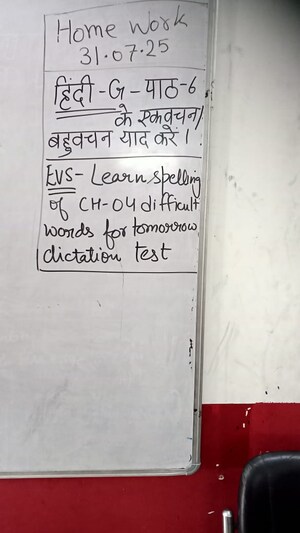 Home Work
31.07.25
हिंदी-G-पाठ-6
के एकवचन/
बहुवचन याद करें।
EVS- Learn spelling
of CH-04 difficult
words for tomorrow
dictation test